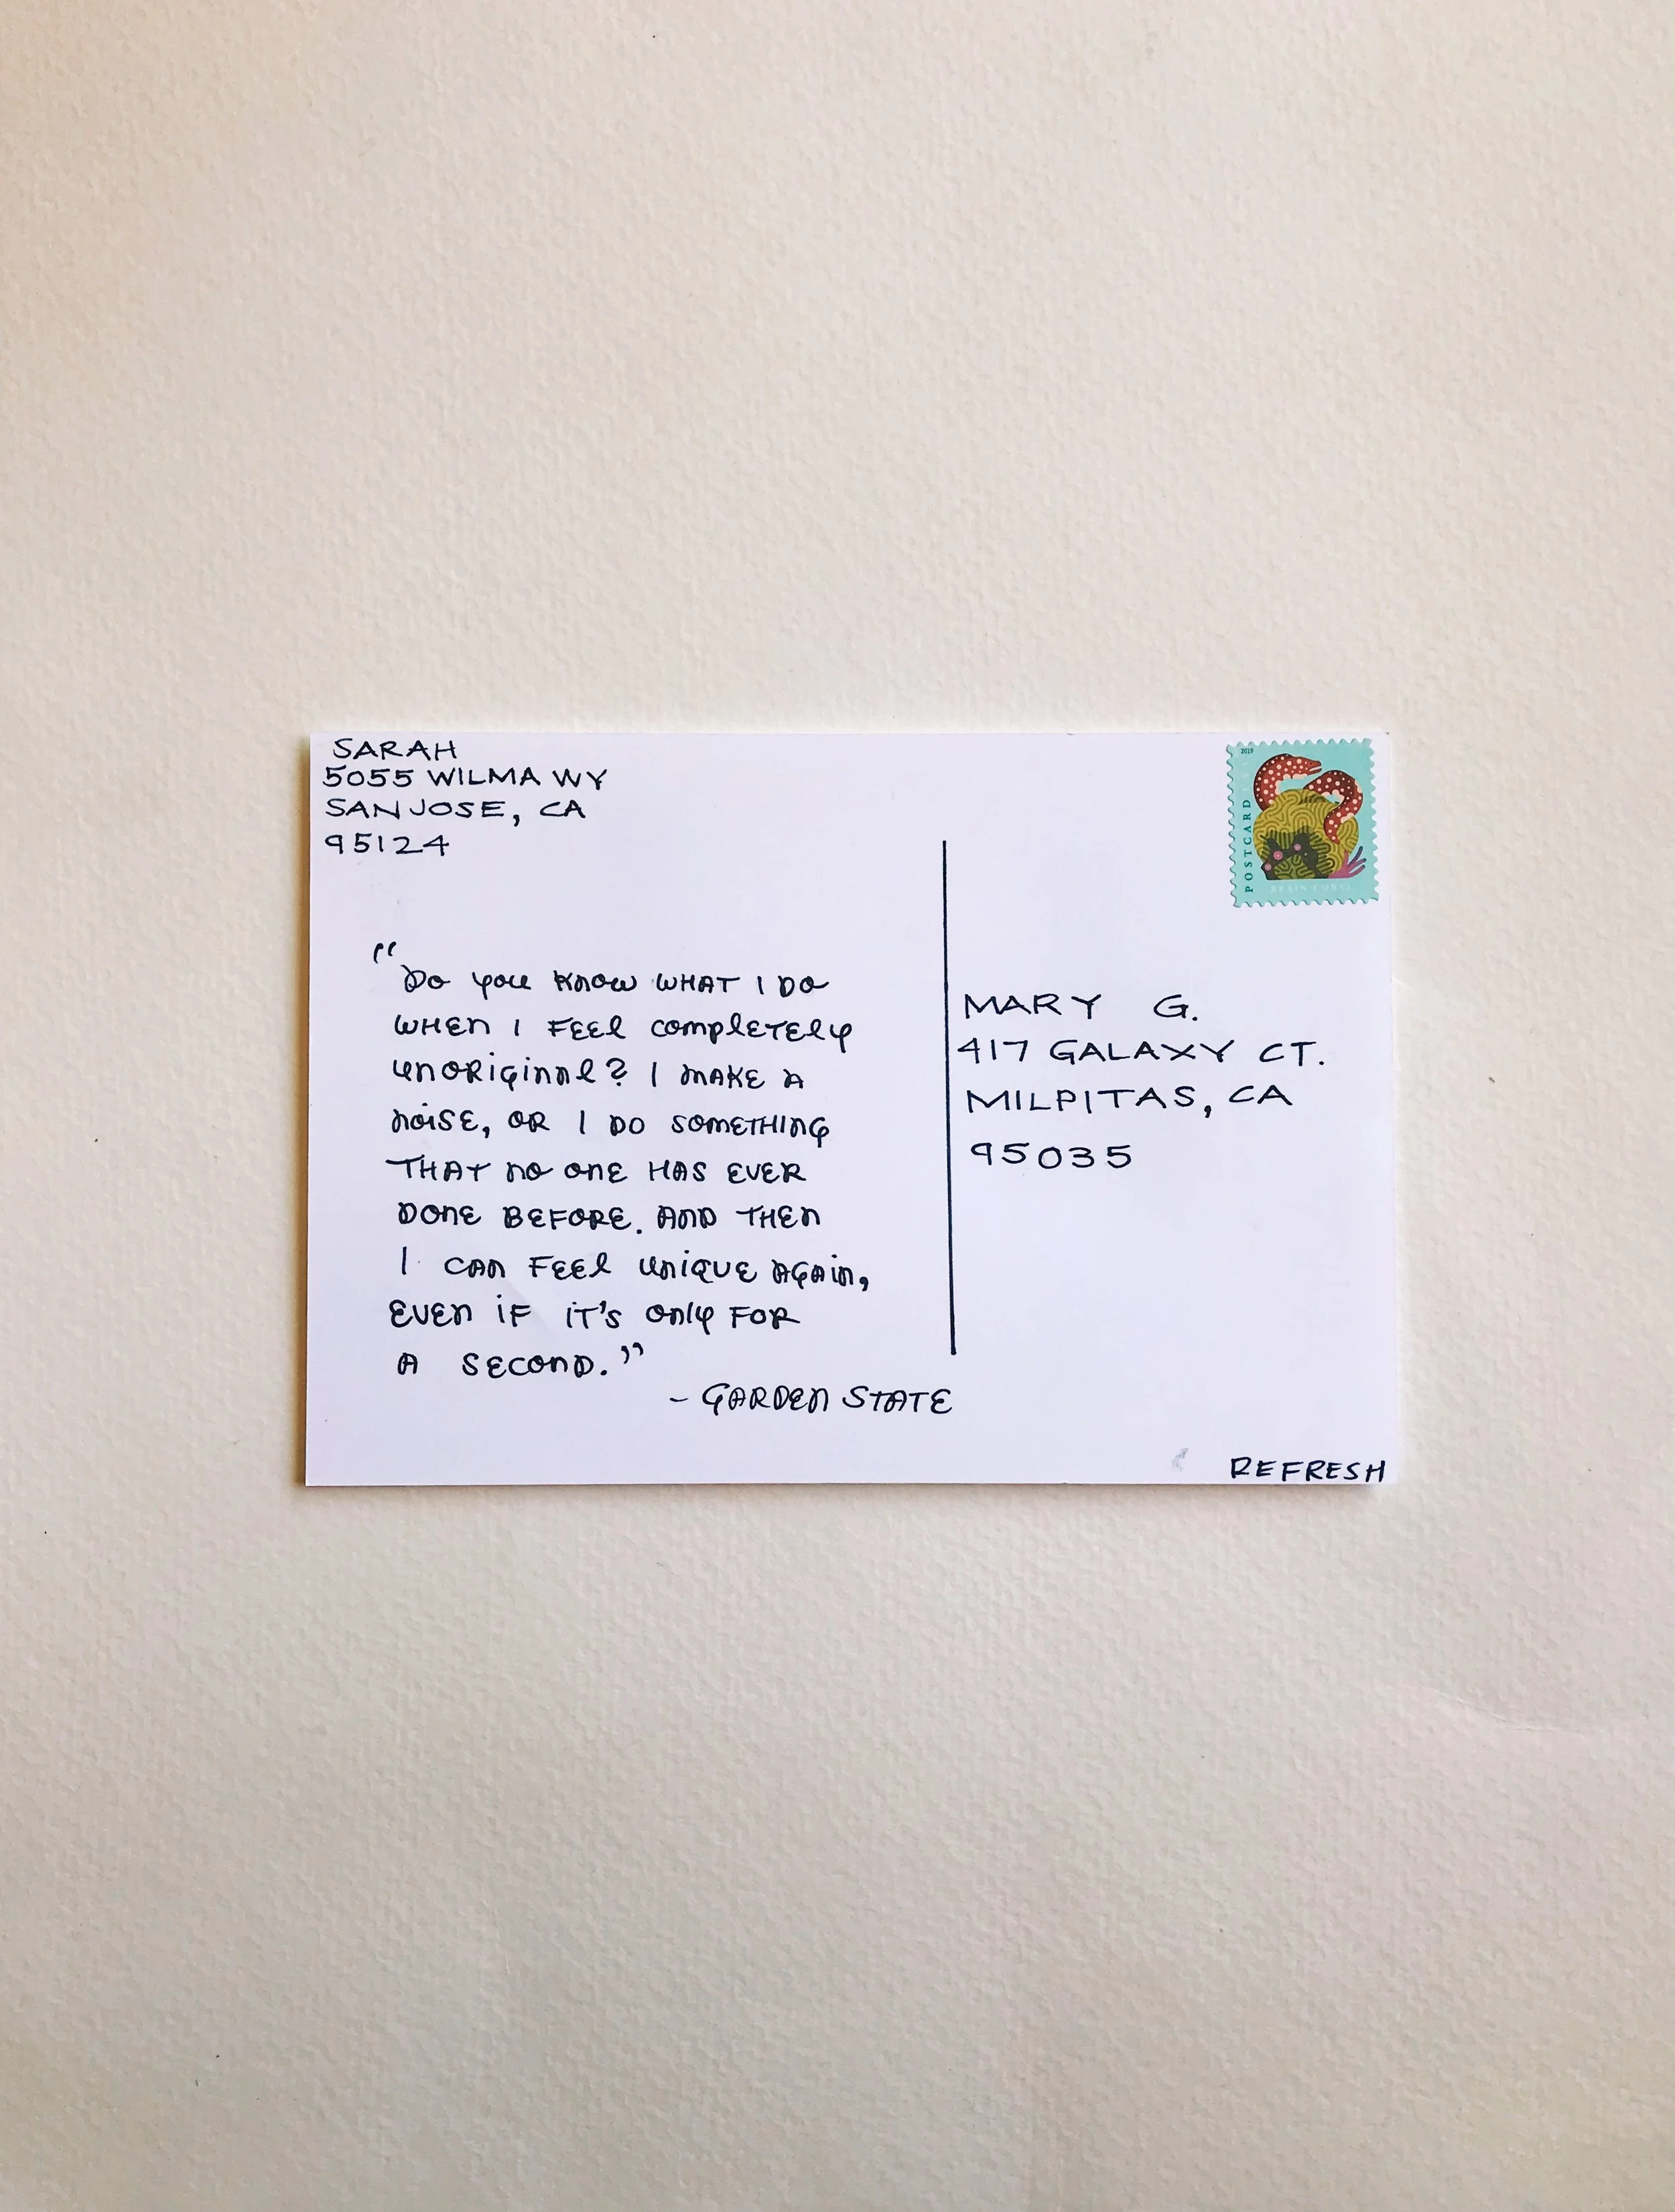 SARAH
5055 WILMA WY
SAN JOSE, CA
95124
2019
POSTCARD
BRAIN CORAL
"Do you know WHAT I DO
WHEN I FEEL completely
unoriginal? I MAKE A
noise, OR I DO SOMETHING
THAT no onE HAS EVER
DONE BEFORE. AND THEN
I CAN FEEL UNIQUE AGAIN,
EVEN IF IT'S only FOR
A SECOND."
- GARDEN STATE
MARY G.
417 GALAXY CT.
MILPITAS, CA
95035
REFRESH